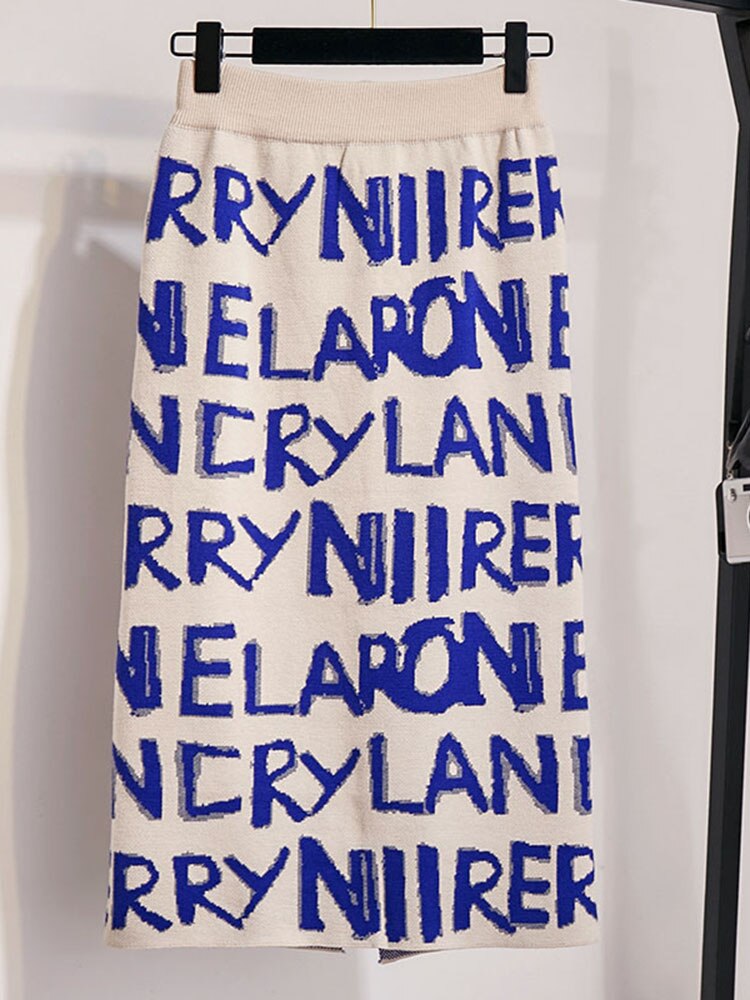 RRYNIIRER
NELARONE
NCRYLAN
RRYNIIRER
NELARONE
NCRYLANI
RRYNIIRER